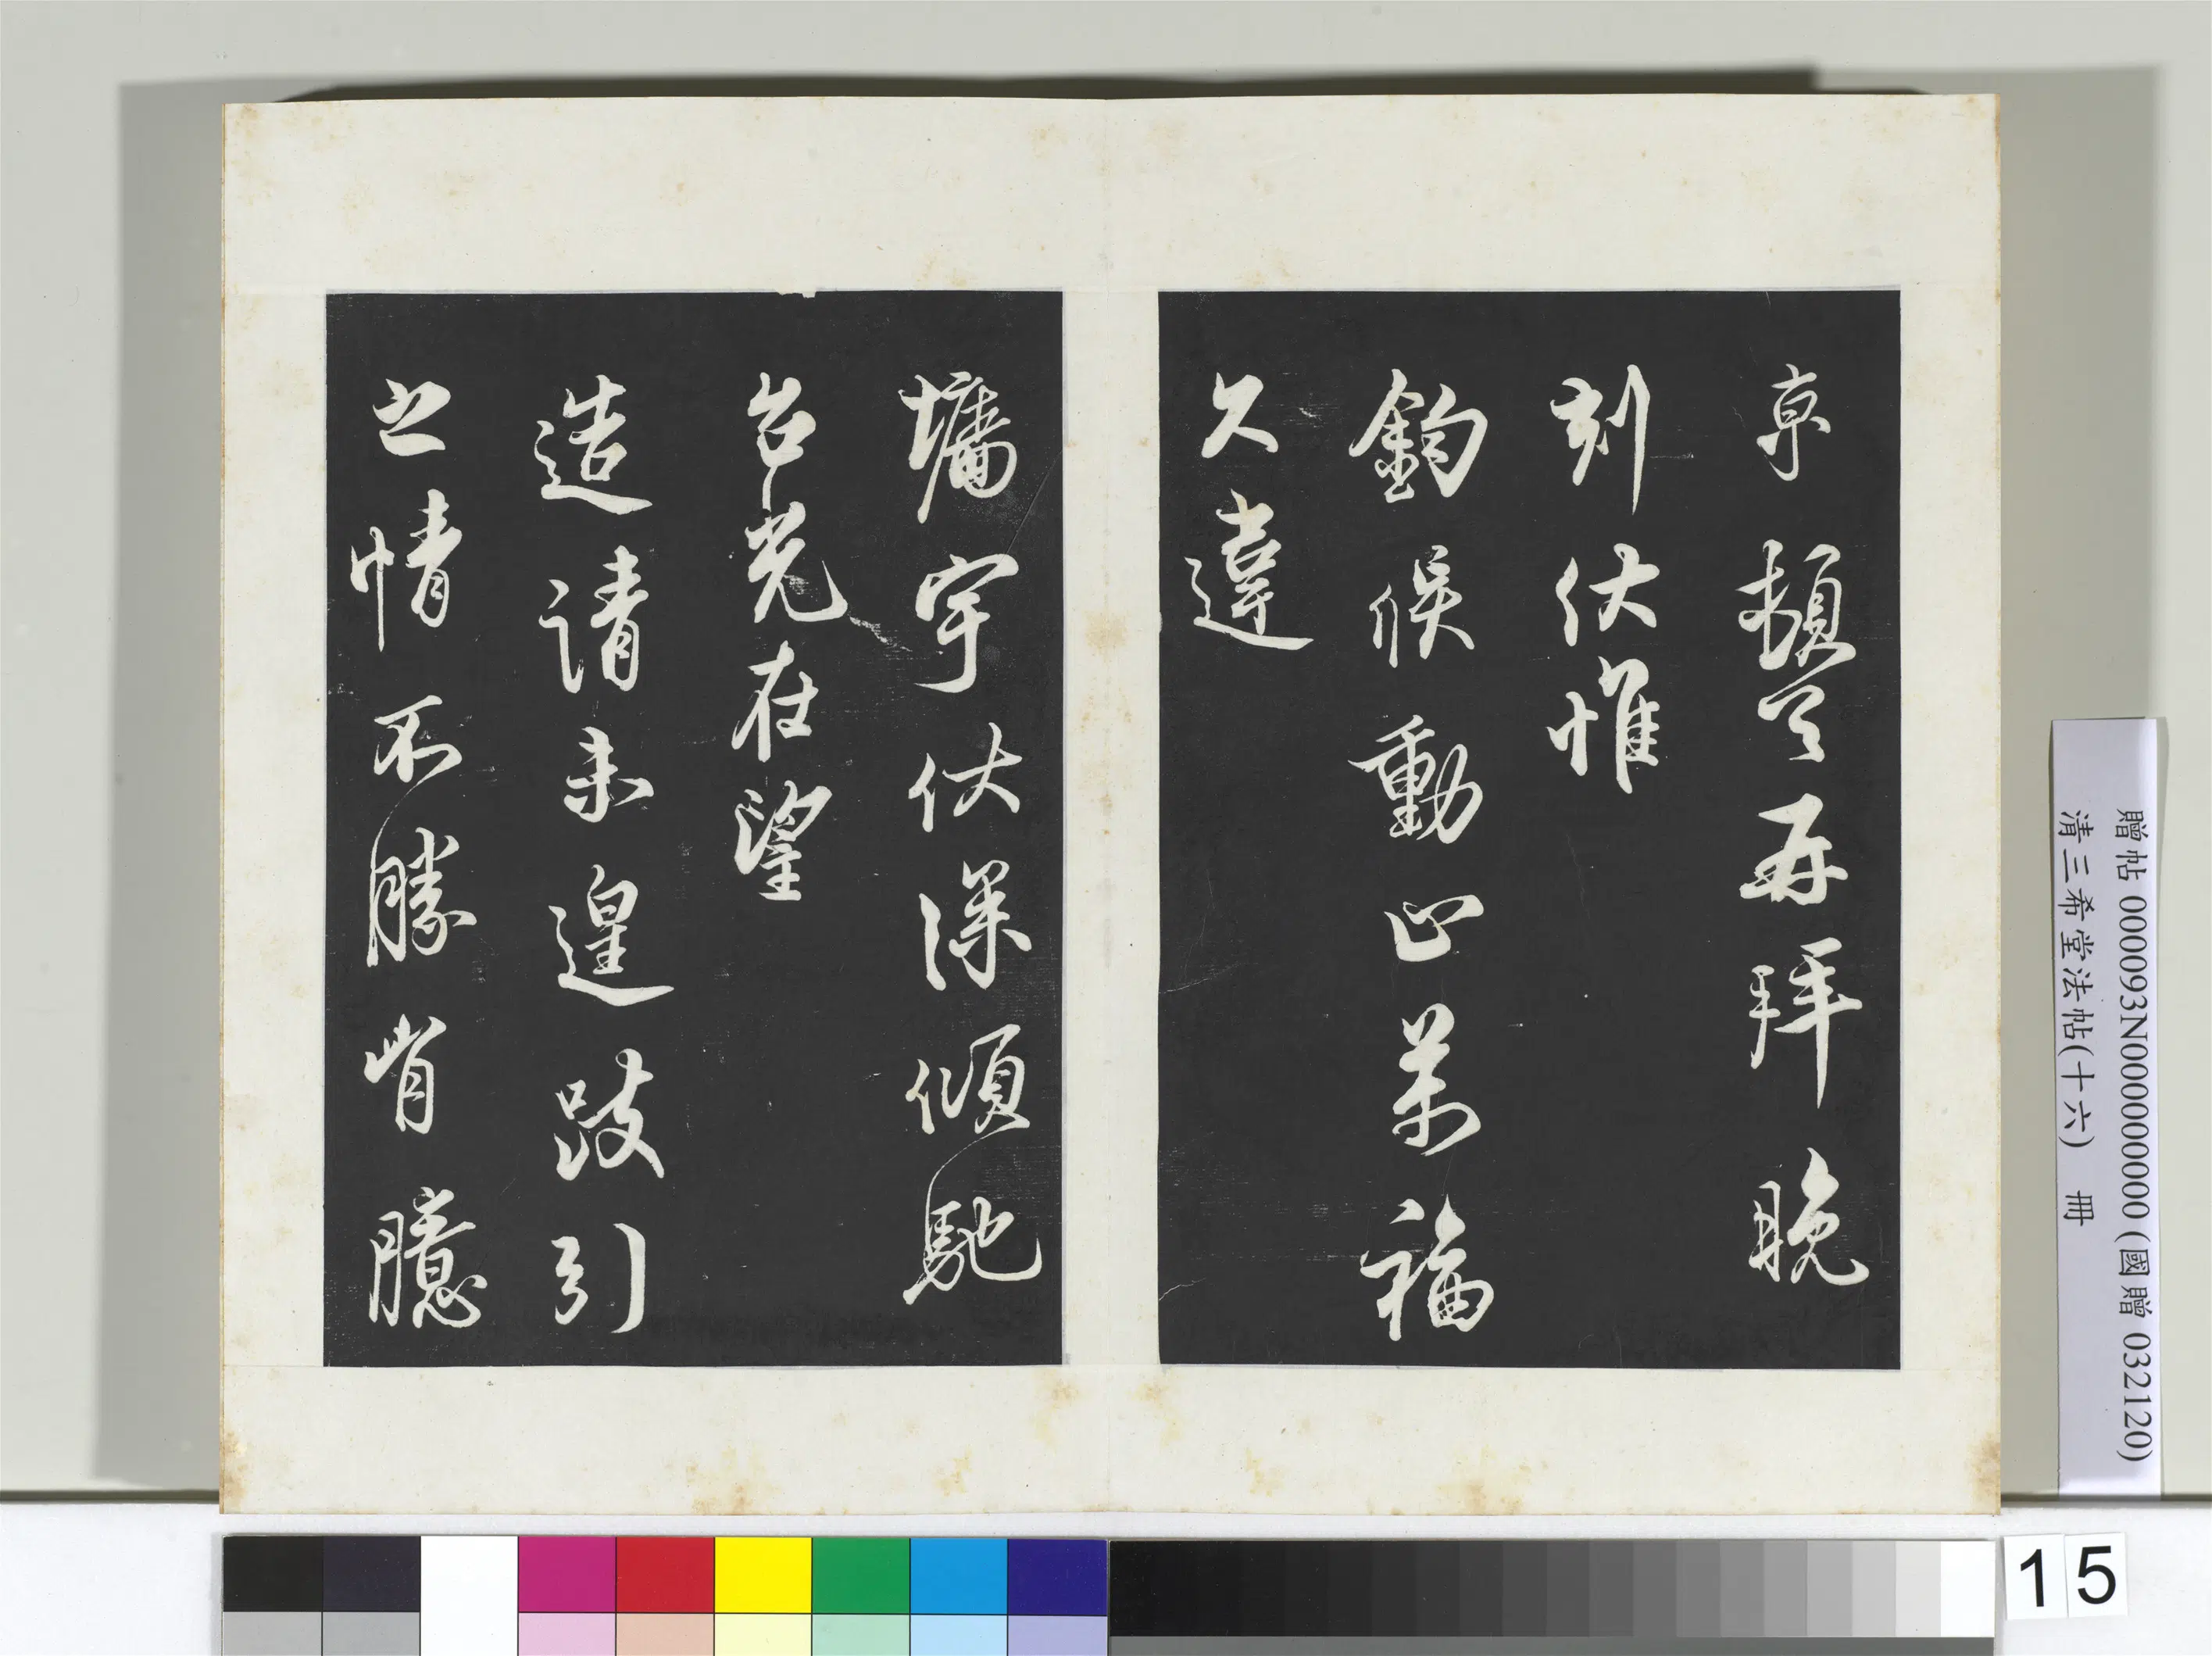 京頓首再拜晚
刻伏惟
鈞候動止萬福
久違
墉宇伏深傾馳
台光在望
造請未遑跂引
之情不勝胷臆
贈帖 000093N000000000 (國贈 032120)
清三希堂法帖(十六) 冊
15